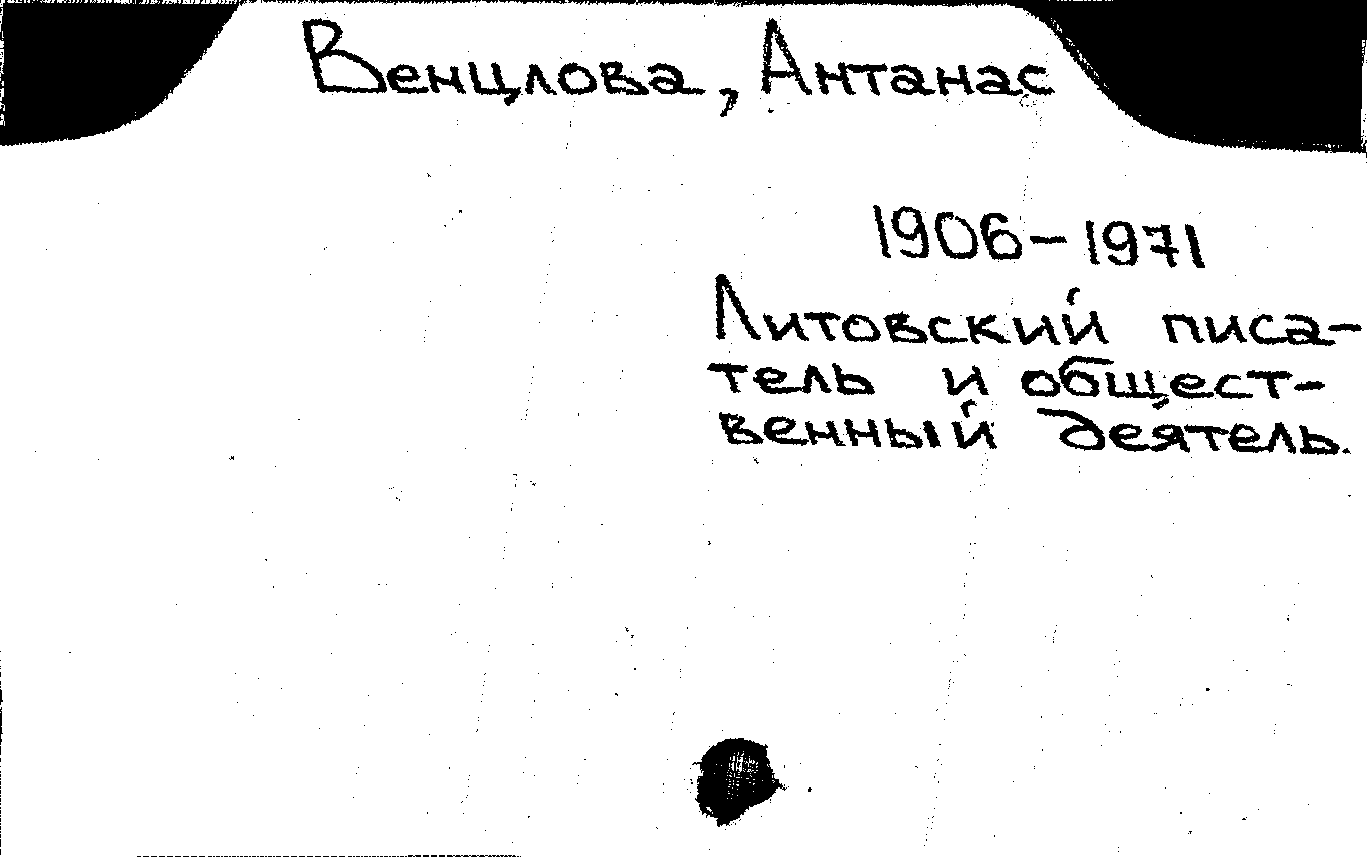 Венцлова, Антанас
1906-1971
Литовский писа-
тель и общест-
венный деятель.